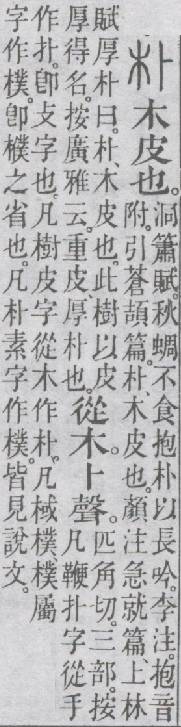 朴 木皮也。
洞簫賦。秋蜩不食抱朴以長吟。李注。抱音
附。引蒼頡篇。朴、木皮也。顏注急就篇、上林
賦厚朴曰。朴、木皮也。此樹以皮
厚得名。按廣雅云。重皮、厚朴也。
從木卜聲。
匹角切。三部。按
凡鞭扑字從手
作扑。卽攴字也。凡樹皮字從木作朴。凡棫樸樸屬
字作樸。卽㯷之省也。凡朴素字作樸。皆見說文。